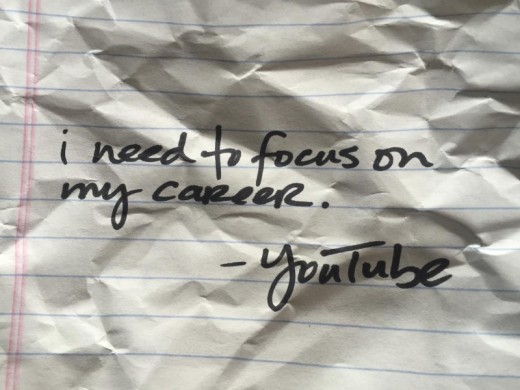 i need to focus on
my career.
- YouTube